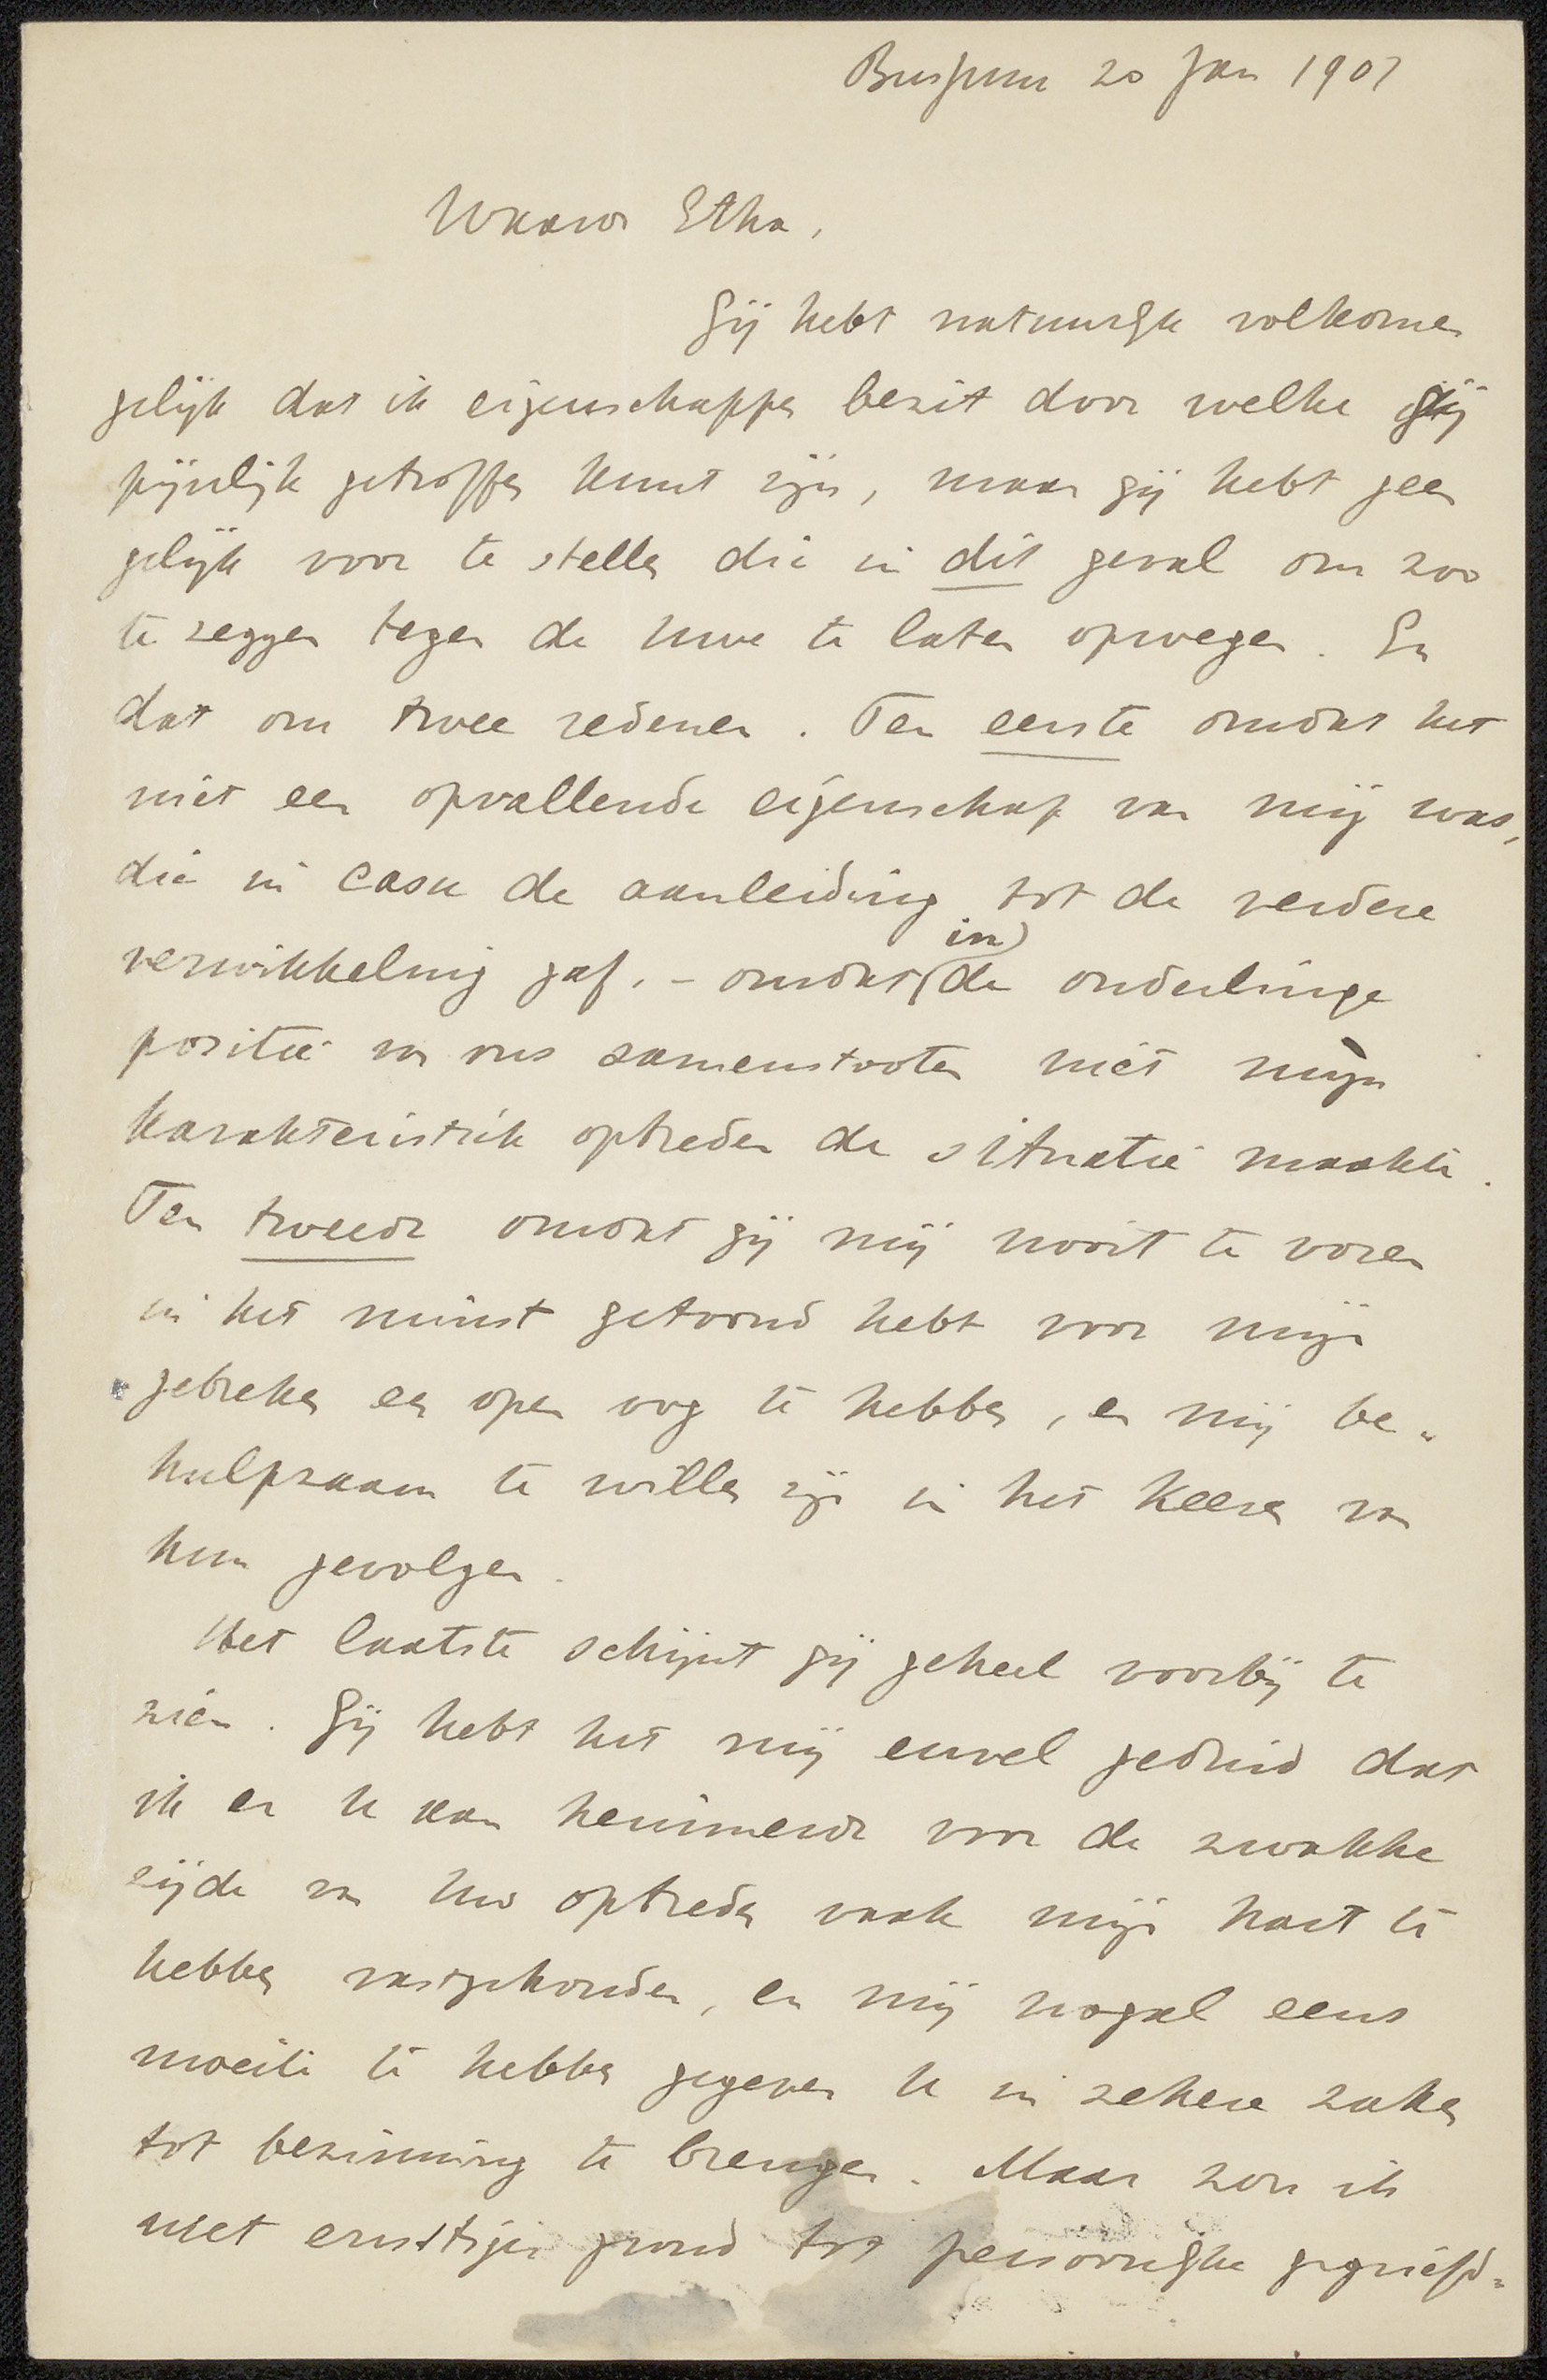 Bussum 20 Jan 1907
Waarde Etha,
Gij hebt natuurlijk volkomen
gelijk dat ik eigenschappen bezit door welke gij
pijnlijk getroffen kunt zijn, maar gij hebt geen
gelijk voor te stellen die in dit geval om zoo
te zeggen tegen de uwe te laten opwegen. En
dat om twee redenen. Ten eerste omdat het
niet een opvallende eigenschap van mij was,
die in casu de aanleiding tot de verdere
verwikkeling gaf. – omdat (in) de onderlinge
positie van ons samenstooten niet mijn
karakteristiek optreden de situatie maakte.
Ten tweede omdat gij mij nooit te voren
in het minst getoond hebt voor mijn
gebreken een open oog te hebben, en mij be-
hulpzaam te willen zijn in het keeren van
hun gevolgen.
Het laatste schijnt gij geheel voorbij te
zien. Gij hebt het mij euvel geduid dat
ik er u aan herinnerde voor de zwakke
zijde van uw optreden vaak mijn hart te
hebben vastgehouden, en mij nogal eens
moeite te hebben gegeven u in zekere zaken
tot bezinning te brengen. Maar zou ik
met ernstiger grond tot persoonlijke gegriefd-